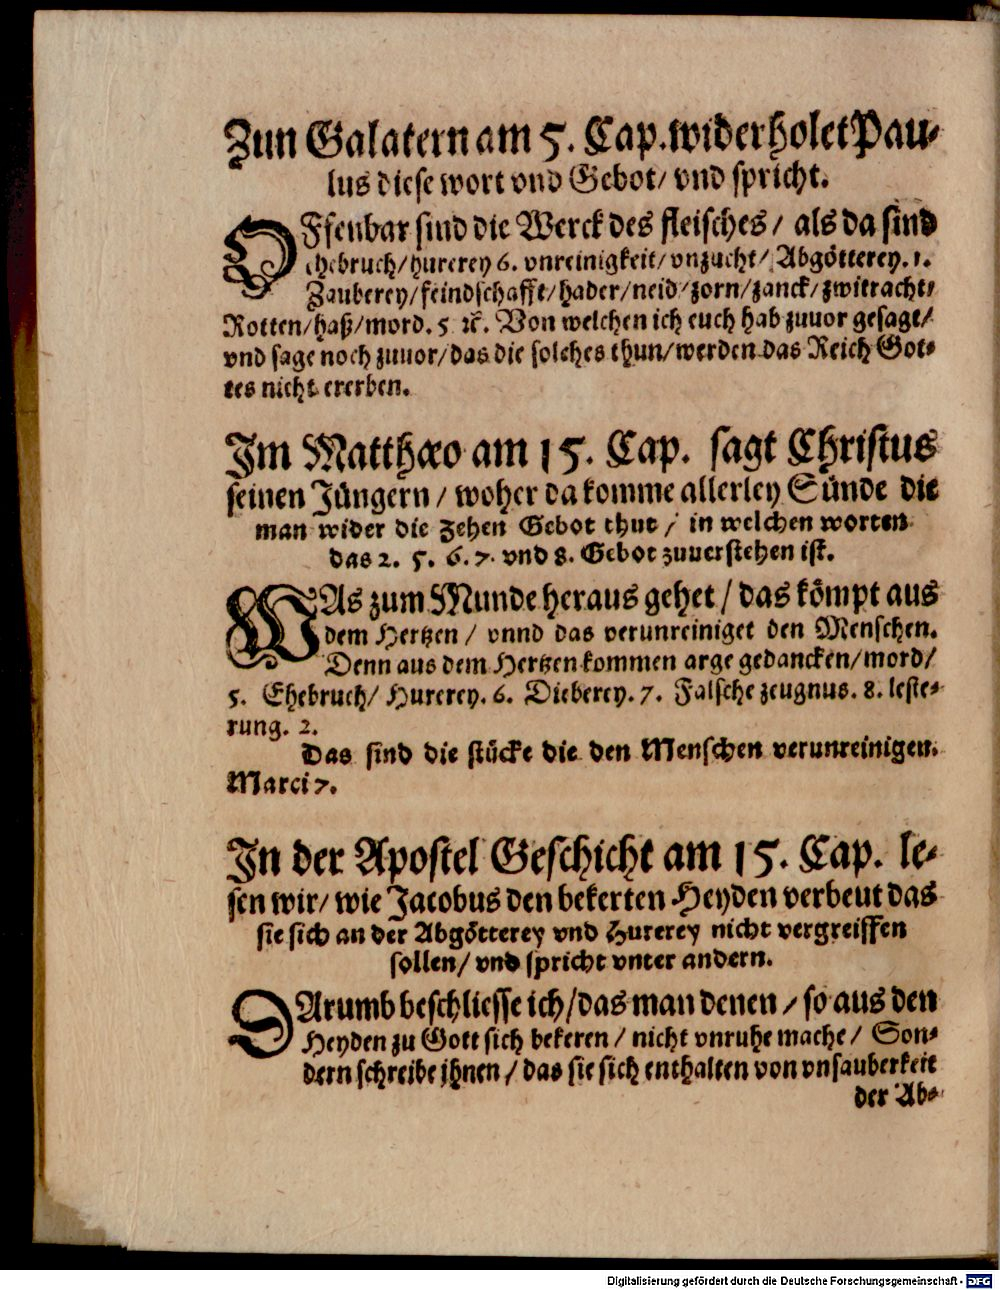 Zun Galatern am 5. Cap. widerholet Pau-
lus diese wort vnd Gebot/ vnd spricht.
OFfenbar sind die Werck des fleisches/ als da sind
ehebruch/ hurerey 6. vnreinigkeit/ vnzucht/ Abgötterey. 1.
Zauberey/ feindschafft/ hader/ neid/ zorn/ zanck/ zwitracht/
Rotten/ haß/ mord. 5 ꝛc. Von welchen ich euch hab zuuor gesagt/
vnd sage noch zuuor/ das die solches thun/ werden das Reich Got-
tes nicht ererben.
Im Matthæo am 15. Cap. sagt Christus
seinen Jüngern/ woher da komme allerley Sünde die
man wider die zehen Gebot thut/ in welchen worten
das 2. 5. 6. 7. vnd 8. Gebot zuuerstehen ist.
WAs zum Munde heraus gehet/ das kömpt aus
dem Hertzen/ vnnd das verunreiniget den Menschen.
Denn aus dem Hertzen kommen arge gedancken/ mord/
5. Ehebruch/ Hurerey. 6. Dieberey. 7. Falsche zeugnus. 8. leste-
rung. 2.
Das sind die stücke die den Menschen verunreinigen.
Marci 7.
In der Apostel Geschicht am 15. Cap. le-
sen wir/ wie Jacobus den bekerten Heyden verbeut das
sie sich an der Abgötterey vnd Hurerey nicht vergreiffen
sollen/ vnd spricht vnter andern.
DArumb beschliesse ich/ das man denen/ so aus den
Heyden zu Gott sich bekeren/ nicht vnruhe mache/ Son-
dern schreibe jhnen/ das sie sich enthalten von vnsauberkeit
der Ab-
Digitalisierung gefördert durch die Deutsche Forschungsgemeinschaft - DFG